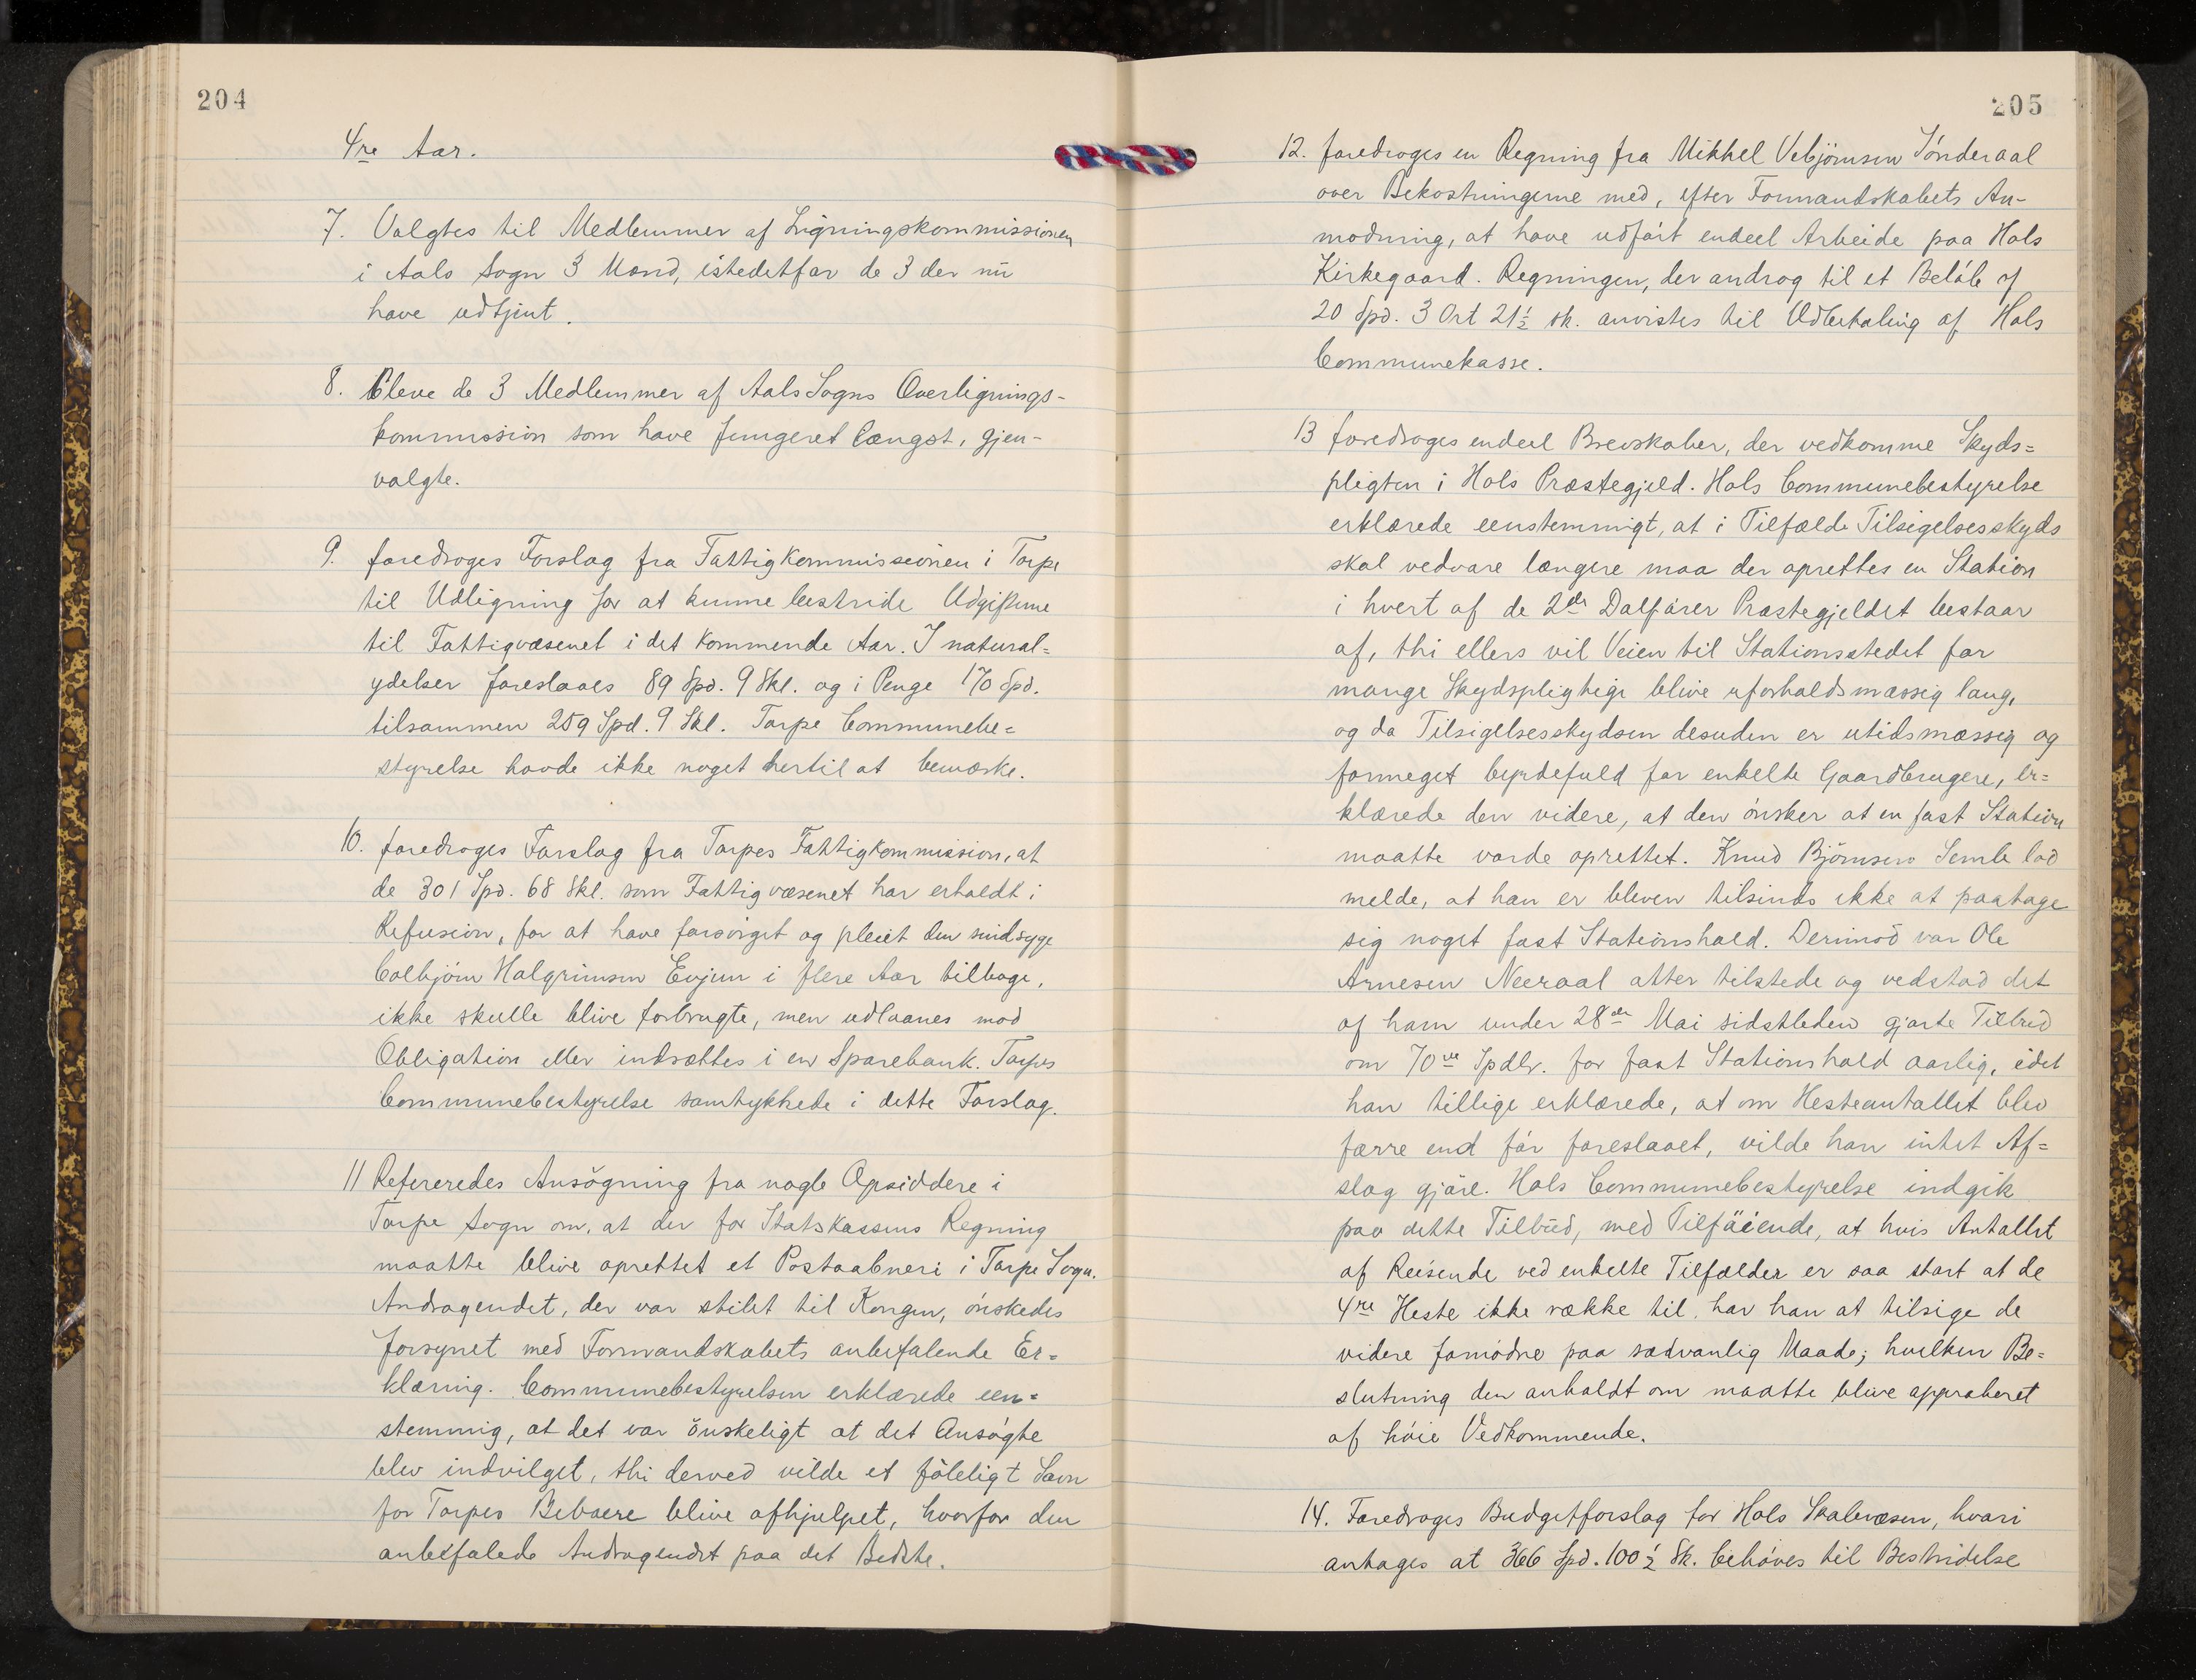 204
4re Aar.
7. Valgtes til Medlemmer af Ligningskommissionen
i Aals Sogn 3 Mænd, istedetfor de 3 der nu
have udtjent.
8. Bleve de 3 Medlemmer af Aals Sogns Overlignings-
kommission som have fungeret længst, gjen-
valgte.
9. foredroges Forslag fra Fattigkommissionen i Torpe
til Udligning for at kunne bestride Udgifterne
til Fattigvæsenet i det kommende Aar. I natural=
ydelser foreslaaes 89 Spd. 9 Skl. og i Penge 170 Spd.
tilsammen 259 Spd. 9 Skl. Torpe Communebe=
styrelse havde ikke noget hertil at bemærke.
10. foredroges Forslag fra Torpes Fattigkommission, at
de 301 Spd. 68 Skl. som Fattigvæsenet har erholdt i
Refusion, for at have forsörget og pleiet den sindsyge
Colbjörn Halgrimsen Evjen i flere Aar tilbage,
ikke skulle blive forbrugte, men udlaanes mod
Obligation eller indsættes i en Sparebank. Torpes
Communebestyrelse samtykkede i dette Forslag.
11 Refereredes Ansögning fra nogle Opsiddere i
Torpe Sogn om, at der for Statskassens Regning
maatte blive oprettet et Postaabneri i Torpe Sogn.
Andragendet, der var stilet til Kongen, önskedes
forsynet med Formandskabets anbefalende Er=
klæring. Communebestyrelsen erklærede een=
stemmig, at det var önskeligt at det Ansögte
blev indvilget, thi derved vilde et föleligt Savn
for Torpes Beboere blive afhjulpet, hvorfor den
anbefalede Andragendet paa det Bedste.
205
12. foredroges en Regning fra Mikkel Vebjörnsen Sönderaal
over Bekostningerne med, efter Formandskabets An-
modning, at have udfört endeel Arbeide paa Hols
Kirkegaard. Regningen, der androg til et Belöb af
20 Spd. 3 Ort 21½ sk. anvistes til Udbetaling af Hols
Communekasse.
13 foredroges endeel Brevskaber, der vedkomme Skyds=
pligten i Hols Præstegjeld. Hols Communebestyrelse
erklærede eenstemmigt, at i Tilfælde Tilsigelsesskyds
skal vedvare længere maa der oprettes en Station
i hvert af de 2de Dalförer Præstegjeldet bestaar
af, thi ellers vil Veien til Stationsstedet for
mange Skydspligtige blive uforholdsmæssig lang,
og da Tilsigelsesskydsen desuden er utidsmæssig og
formeget byrdefuld for enkelte Gaardbrugere, er=
klærede den videre, at den önsker at en fast Station
maatte vorde oprettet. Knud Björnsen Semle lod
melde, at han er bleven tilsinds ikke at paatage
sig noget fast Stationshold. Derimod var Ole
Arnesen Neeraal atter tilstede og vedstod det
af ham under 28de Mai sidstleden gjorte Tilbud
om 70ve Spdlr. for fast Stationshold aarlig, idet
han tillige erklærede, at om Hesteantallet blev
færre end för foreslaaet, vilde han intet Af=
slag gjöre. Hols Communebestyrelse indgik
paa dette Tilbud, med Tilföiende, at hvis Antallet
af Reisende ved enkelte Tilfælder er saa stort at de
4re Heste ikke række til, har han at tilsige de
videre fornödne paa sædvanlig Maade; hvilken Be=
slutning den anholdt om maatte blive approberet
af höie Vedkommende.
14. Foredroges Budgetforslag for Hols Skolevæsen, hvori
antages at 366 Spd. 100½ Sk. behöves til Bestridelse